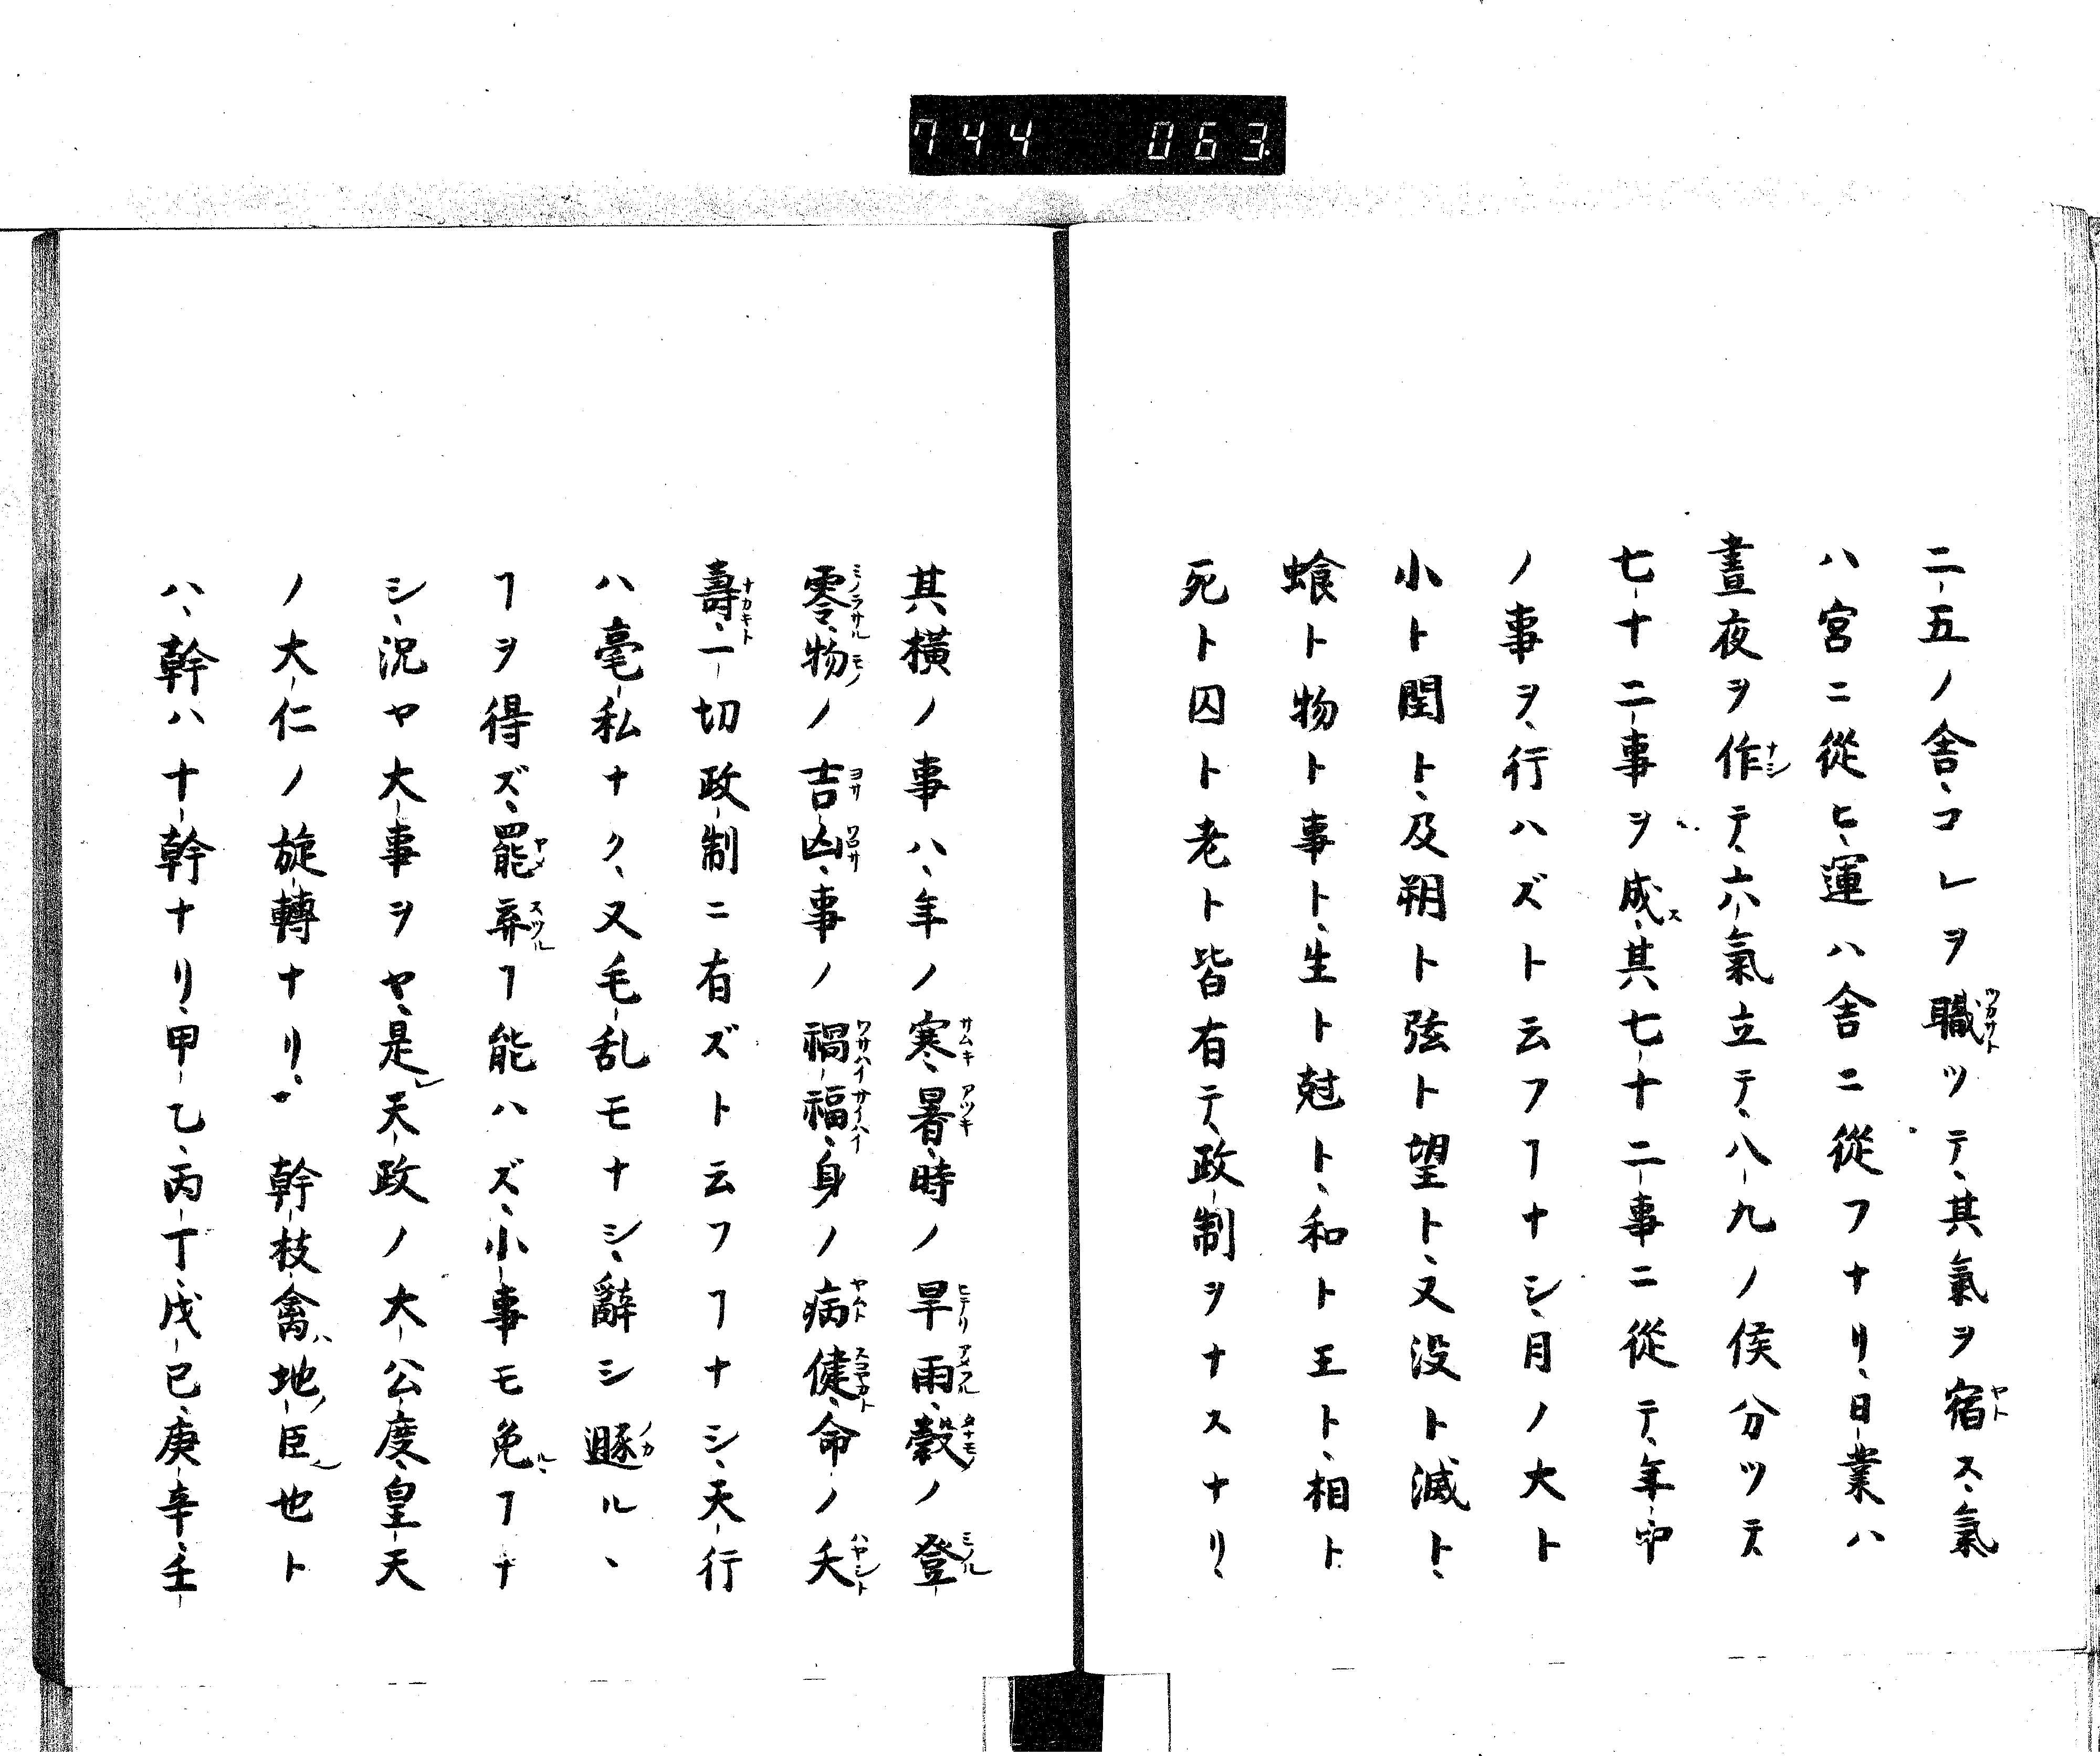 744 063
二五ノ舎、コレヲ職ツテ、其氣ヲ宿ス、氣
ハ宮ニ從ヒ、運ハ舎ニ從フナリ、日業ハ
晝夜ヲ作テ、六氣立テ、八九ノ候分ツテ
七十二事ヲ成、其七十二事ニ從テ、年中
ノ事ヲ、行ハズト云フヿナシ、月ノ大ト
小ト閏ト、及朔ト弦ト望ト、又没ト滅ト、
蝕ト物ト事ト、生ト尅ト、和ト王ト、相ト
死ト囚ト老ト皆有テ、政制ヲナスナリ、
其横ノ事ハ、年ノ寒、暑、時ノ旱雨、穀ノ登
零、物ノ吉凶、事ノ禍福、身ノ病健、命ノ夭
壽、一切政制ニ有ズト云フヿナシ、天行
ハ毫私ナク、又毛乱モナシ、辭シ遯ル、
ヿヲ得ズ、罷弃ヿ能ハズ、小事モ免ヿナ
シ、況ヤ大事ヲヤ、是天政ノ大公度、皇天
ノ大仁ノ旋轉ナリ、幹枝禽地臣也ト
ハ、幹ハ十幹ナリ、甲乙、丙丁、戊己、庚辛、壬